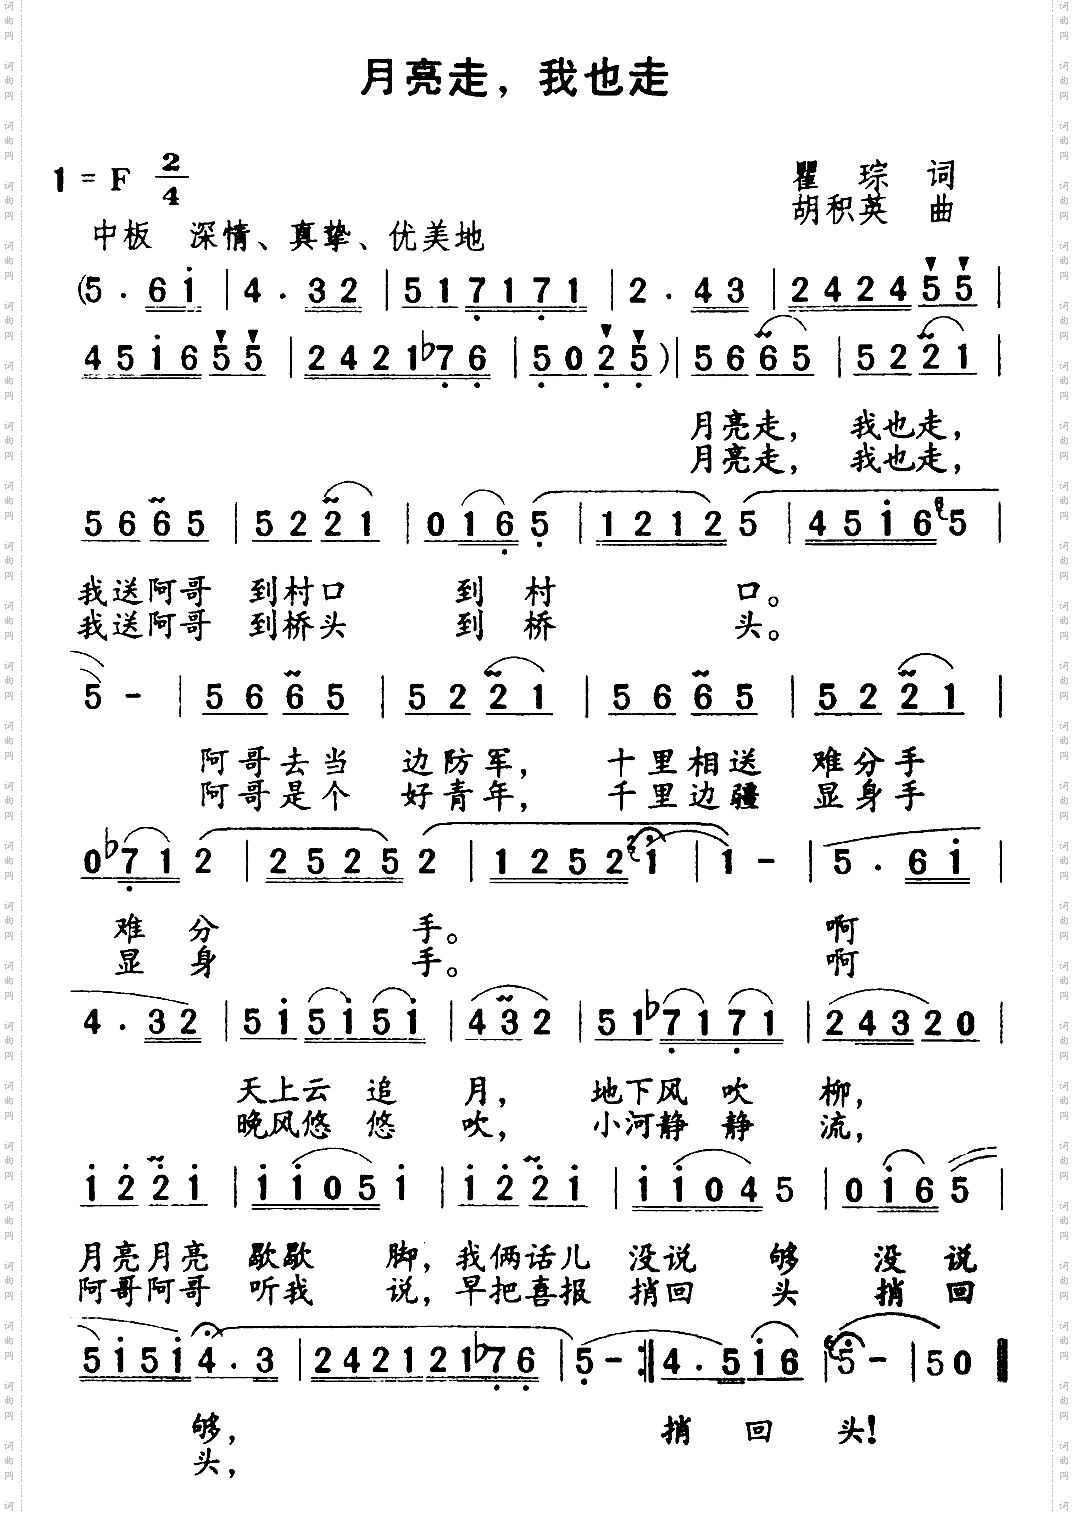 月亮走，我也走
1 = F 2/4
瞿 琮 词
胡积英 曲
中板 深情、真挚、优美地
(5 · 6 i | 4 · 3 2 | 5 1 7 1 7 1 | 2 · 4 3 | 2 4 2 4 5 5 |
4 5 i 6 5 5 | 2 4 2 1 ♭7 6 | 5 0 2 5 ) | 5 6 6 5 | 5 2 2 1 |
月亮走， 我也走，
月亮走， 我也走，
5 6 6 5 | 5 2 2 1 | 0 1 6 5 | 1 2 1 2 5 | 4 5 i 6 5 |
我送阿哥 到村口 到 村 口。
我送阿哥 到桥头 到 桥 头。
5 - | 5 6 6 5 | 5 2 2 1 | 5 6 6 5 | 5 2 2 1 |
阿哥去当 边防军， 十里相送 难分手
阿哥是个 好青年， 千里边疆 显身手
0 ♭7 1 2 | 2 5 2 5 2 | 1 2 5 2 1 | 1 - | 5 · 6 i |
难 分 手。 啊
显 身 手。 啊
4 · 3 2 | 5 i 5 i 5 i | 4 3 2 | 5 1 ♭7 1 7 1 | 2 4 3 2 0 |
天上云 追 月， 地下风 吹 柳，
晚风悠 悠 吹， 小河静 静 流，
i 2 2 i | i i 0 5 i | i 2 2 i | i i 0 4 5 | 0 i 6 5 |
月亮月亮 歇歇 脚，我俩话儿 没说 够 没 说
阿哥阿哥 听我 说，早把喜报 捎回 头 捎 回
5 i 5 i 4 · 3 | 2 4 2 1 2 1 ♭7 6 | 5 - :| 4 · 5 i 6 | 5 - | 5 0 ‖
够， 捎 回 头！
头，
词曲网